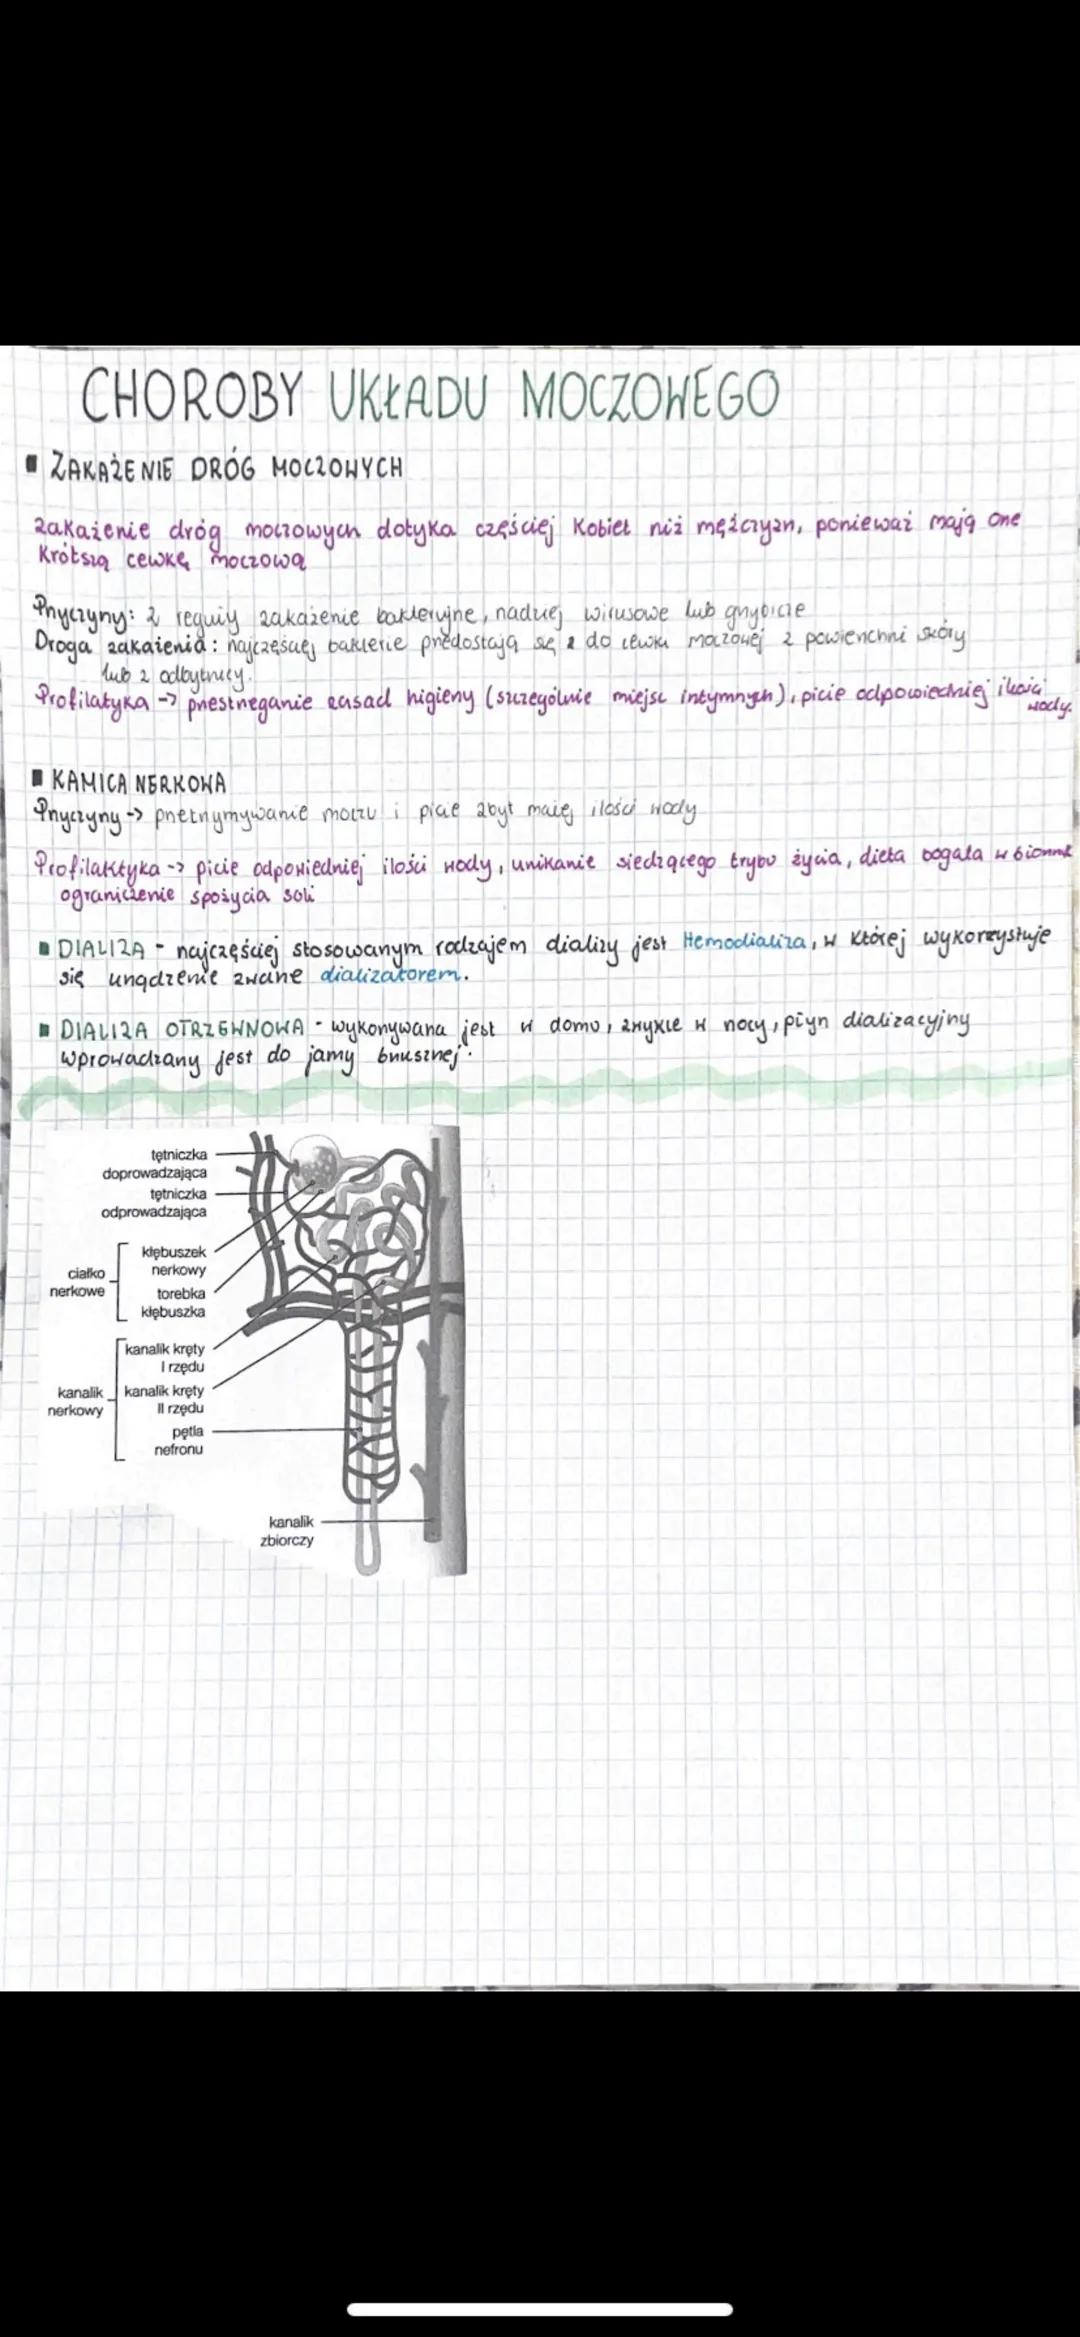 CHOROBY UKŁADU MOCZOWEGO
▪ ZAKAŻENIE DRÓG MOCZOWYCH
Zakażenie dróg moczowych dotyka częściej kobiet niż mężczyzn, ponieważ mają one
krótszą cewkę moczową
Przyczyny: z reguły zakażenie bakteryjne, rzadziej wirusowe lub grzybicze
Droga zakażenia: najczęściej bakterie przedostają się do cewki moczowej z powierzchni skóry
lub z odbytnicy.
Profilatyka -> przestrzeganie zasad higieny (szczególnie miejsc intymnych), picie odpowiedniej ilości
wody.
▪ KAMICA NERKOWA
Przyczyny -> przetrzymywanie moczu i picie zbyt małej ilości wody
Profilaktyka -> picie odpowiedniej ilości wody, unikanie siedzącego trybu życia, dieta bogata w błonnik
ograniczenie spożycia soli
▪ DIALIZA - najczęściej stosowanym rodzajem dializy jest Hemodializa, w której wykorzystuje
się urządzenie zwane dializatorem.
▪ DIALIZA OTRZEWNOWA - wykonywana jest w domu, zwykle w nocy, płyn dializacyjny
wprowadzany jest do jamy brzusznej.
tętniczka
doprowadzająca
tętniczka
odprowadzająca
kłębuszek
nerkowy
ciałko
nerkowe
torebka
kłębuszka
kanalik kręty
I rzędu
kanalik
nerkowy
kanalik kręty
II rzędu
pętla
nefronu
kanalik
zbiorczy